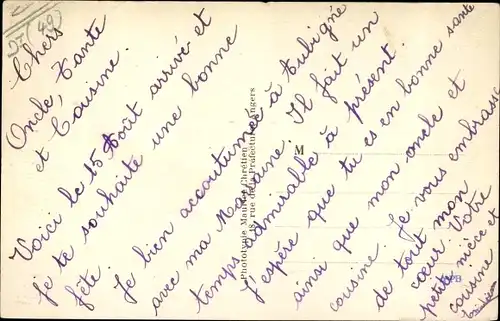 Chers
Oncle, Tante
et Cousine
Voici le 15 Août arrivé et
je te souhaite une bonne
fête. Je bien accoutumés à Aubigné
avec ma Marraine. Il fait un
temps admirable à présent.
J'espère que tu es en bonne santé
ainsi que mon oncle et
cousine. Je vous embrasse
de tout mon
cœur. Votre
petite nièce et
cousine
Phototypie Maurice Chrétien
8, rue de la Préfecture, Angers
M